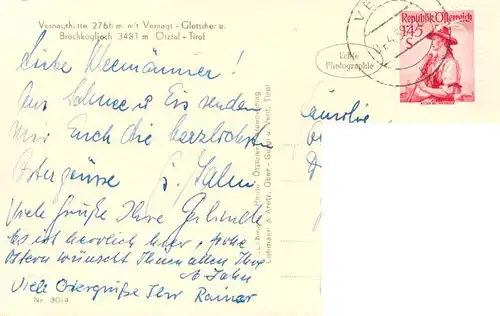 Vernagthütte 2766 m mit Vernagt - Gletscher u.
Brochkogljoch 3481 m Ötztal - Tirol
Liebe
Aus Schnee u. Eis senden
wir Euch die herzlichsten
Ostergrüsse
Viele Grüße Ihre Gerlinde
Es ist herrlich hier, frohe
Ostern wünscht Ihnen allen Ihre
Jahn
Viele Ostergrüße Ihr Rainer
Nr. 3074
Echte
Photographie
VE
Republik Österreich
1.45
S
Familie
Lohmann & Aretz, Ober - Gurgl u. Vent, Tirol